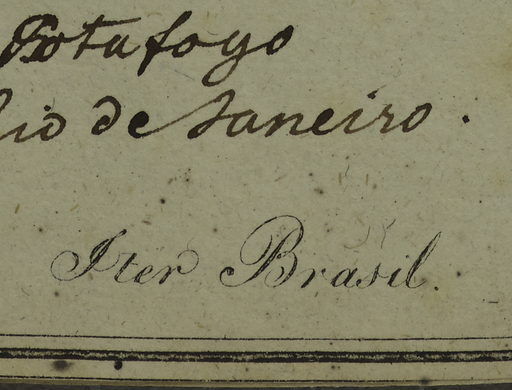 Botafogo
Rio de Janeiro.
Iter Brasil.